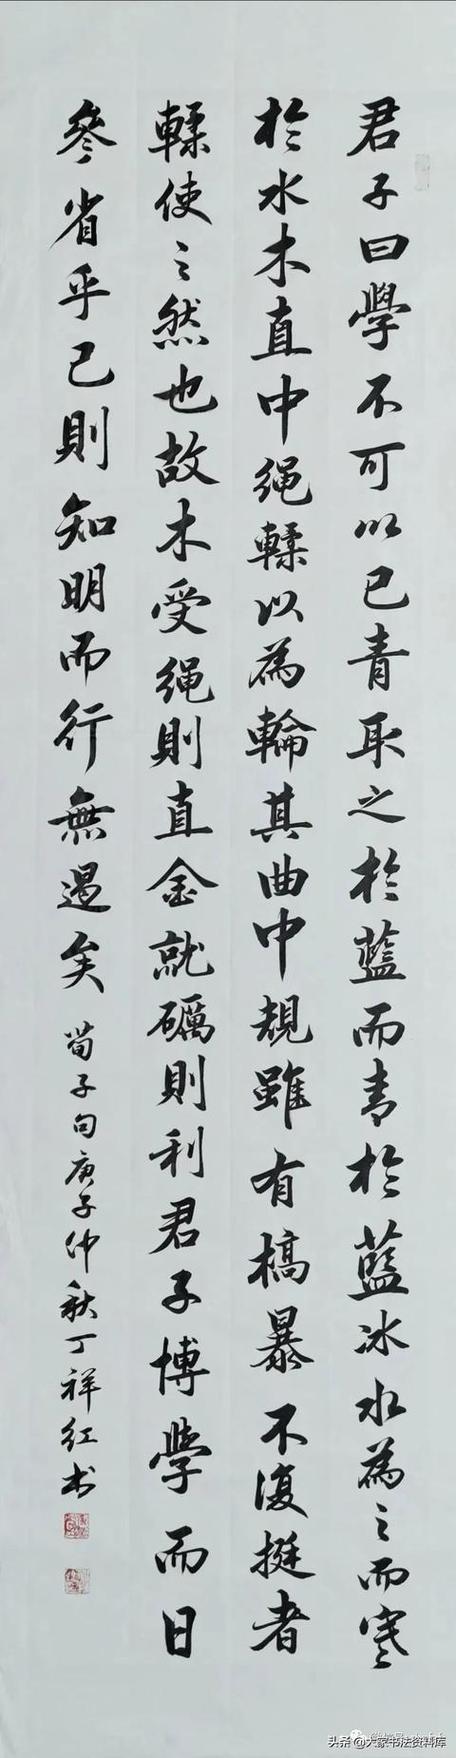 君子曰學不可以已青取之於藍而青於藍冰水為之而寒
於水木直中繩輮以為輪其曲中規雖有槁暴不復挺者
輮使之然也故木受繩則直金就礪則利君子博學而日
參省乎己則知明而行無過矣
荀子句庚子仲秋丁祥红书
头条 @大家书法资料库